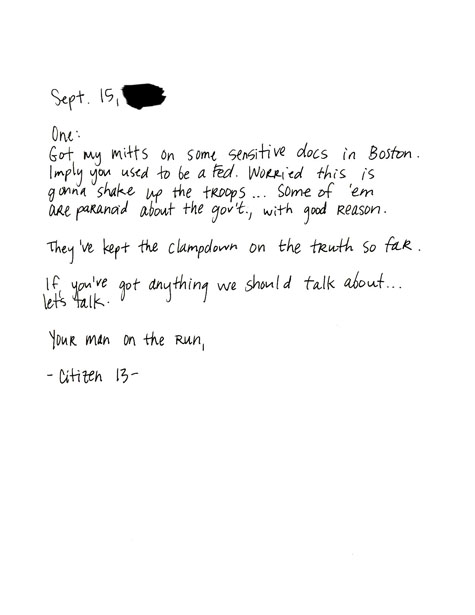 Sept. 15,
One:
Got my mitts on some sensitive docs in Boston.
Imply you used to be a fed. Worried this is
gonna shake up the troops... Some of 'em
are paranoid about the gov't., with good reason.
They've kept the clampdown on the truth so far.
If you've got anything we should talk about...
let's talk.
Your man on the run,
- Citizen 13 -